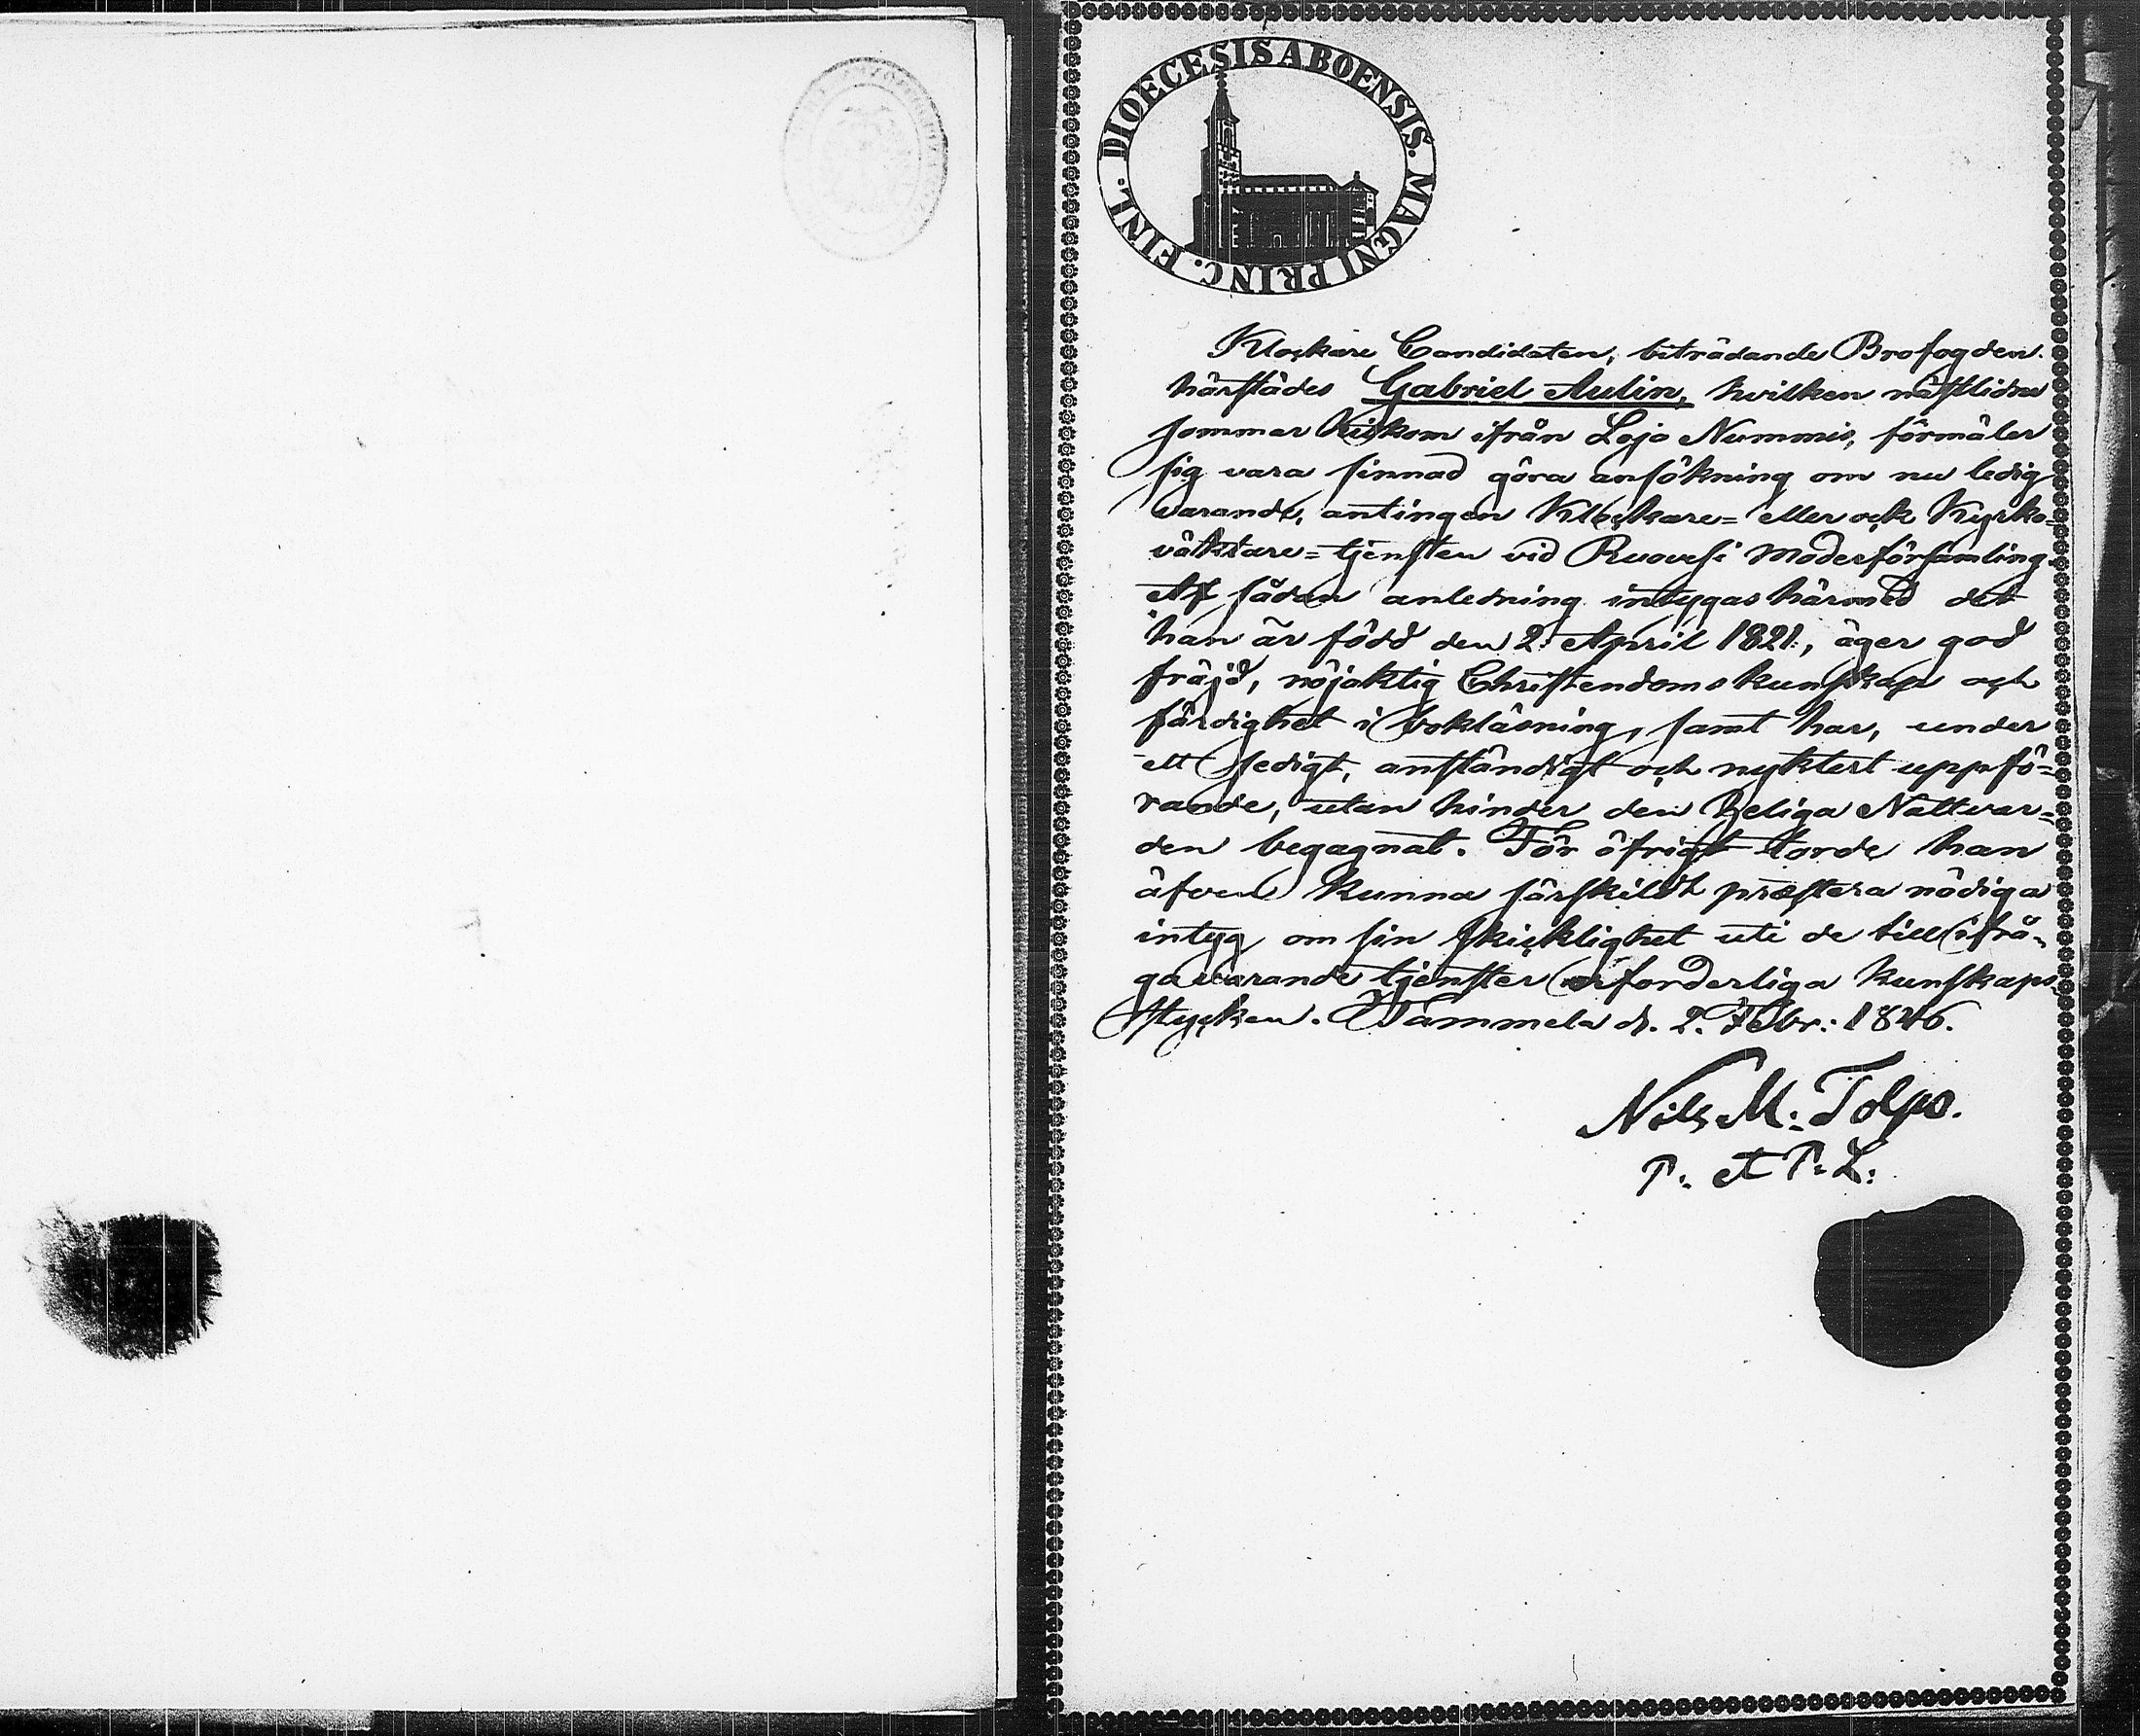 DIOECESIS ABOENSIS. MAGNI PRINC. FINL.
Klockare Candidaten, biträdande Brofogden
härstädes Gabriel Aulin, hvilken nästlidne
sommar hitkom ifrån Lojo Nummis, förmäler
sig vara sinnad göra ansökning om nu ledig
varande, antingen Klockare= eller ock Kyrko=
väktare=tjensten vid Ruovesi Moderförsamling.
Af sådan anledning intygas härmed det
han är född den 2. April 1821., äger god
fräjd, nöjaktig Christendomskunskap och
färdighet i bokläsning, samt har, under
ett sedigt, anständigt och nyktert uppfö=
rande, utan hinder den Heliga Nattvar=
den begagnat. För öfrigt torde han
äfven kunna särskildt præstera nödiga
intyg om sin skicklighet uti de till ifrå=
gavarande tjenster erforderliga kunskaps
stycken. Tammela d. 2. Febr: 1846.
Nils M: Tolpo.
P: et P: L: